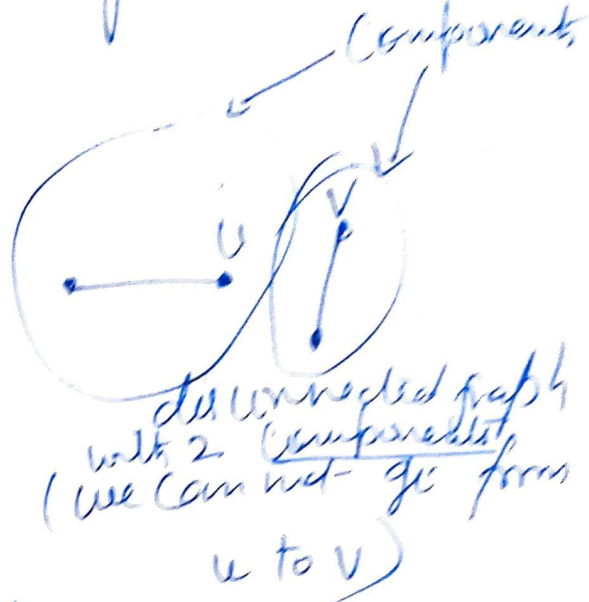 Components
U
V
disconnected graph
with 2 components
(we can not go from
u to v)